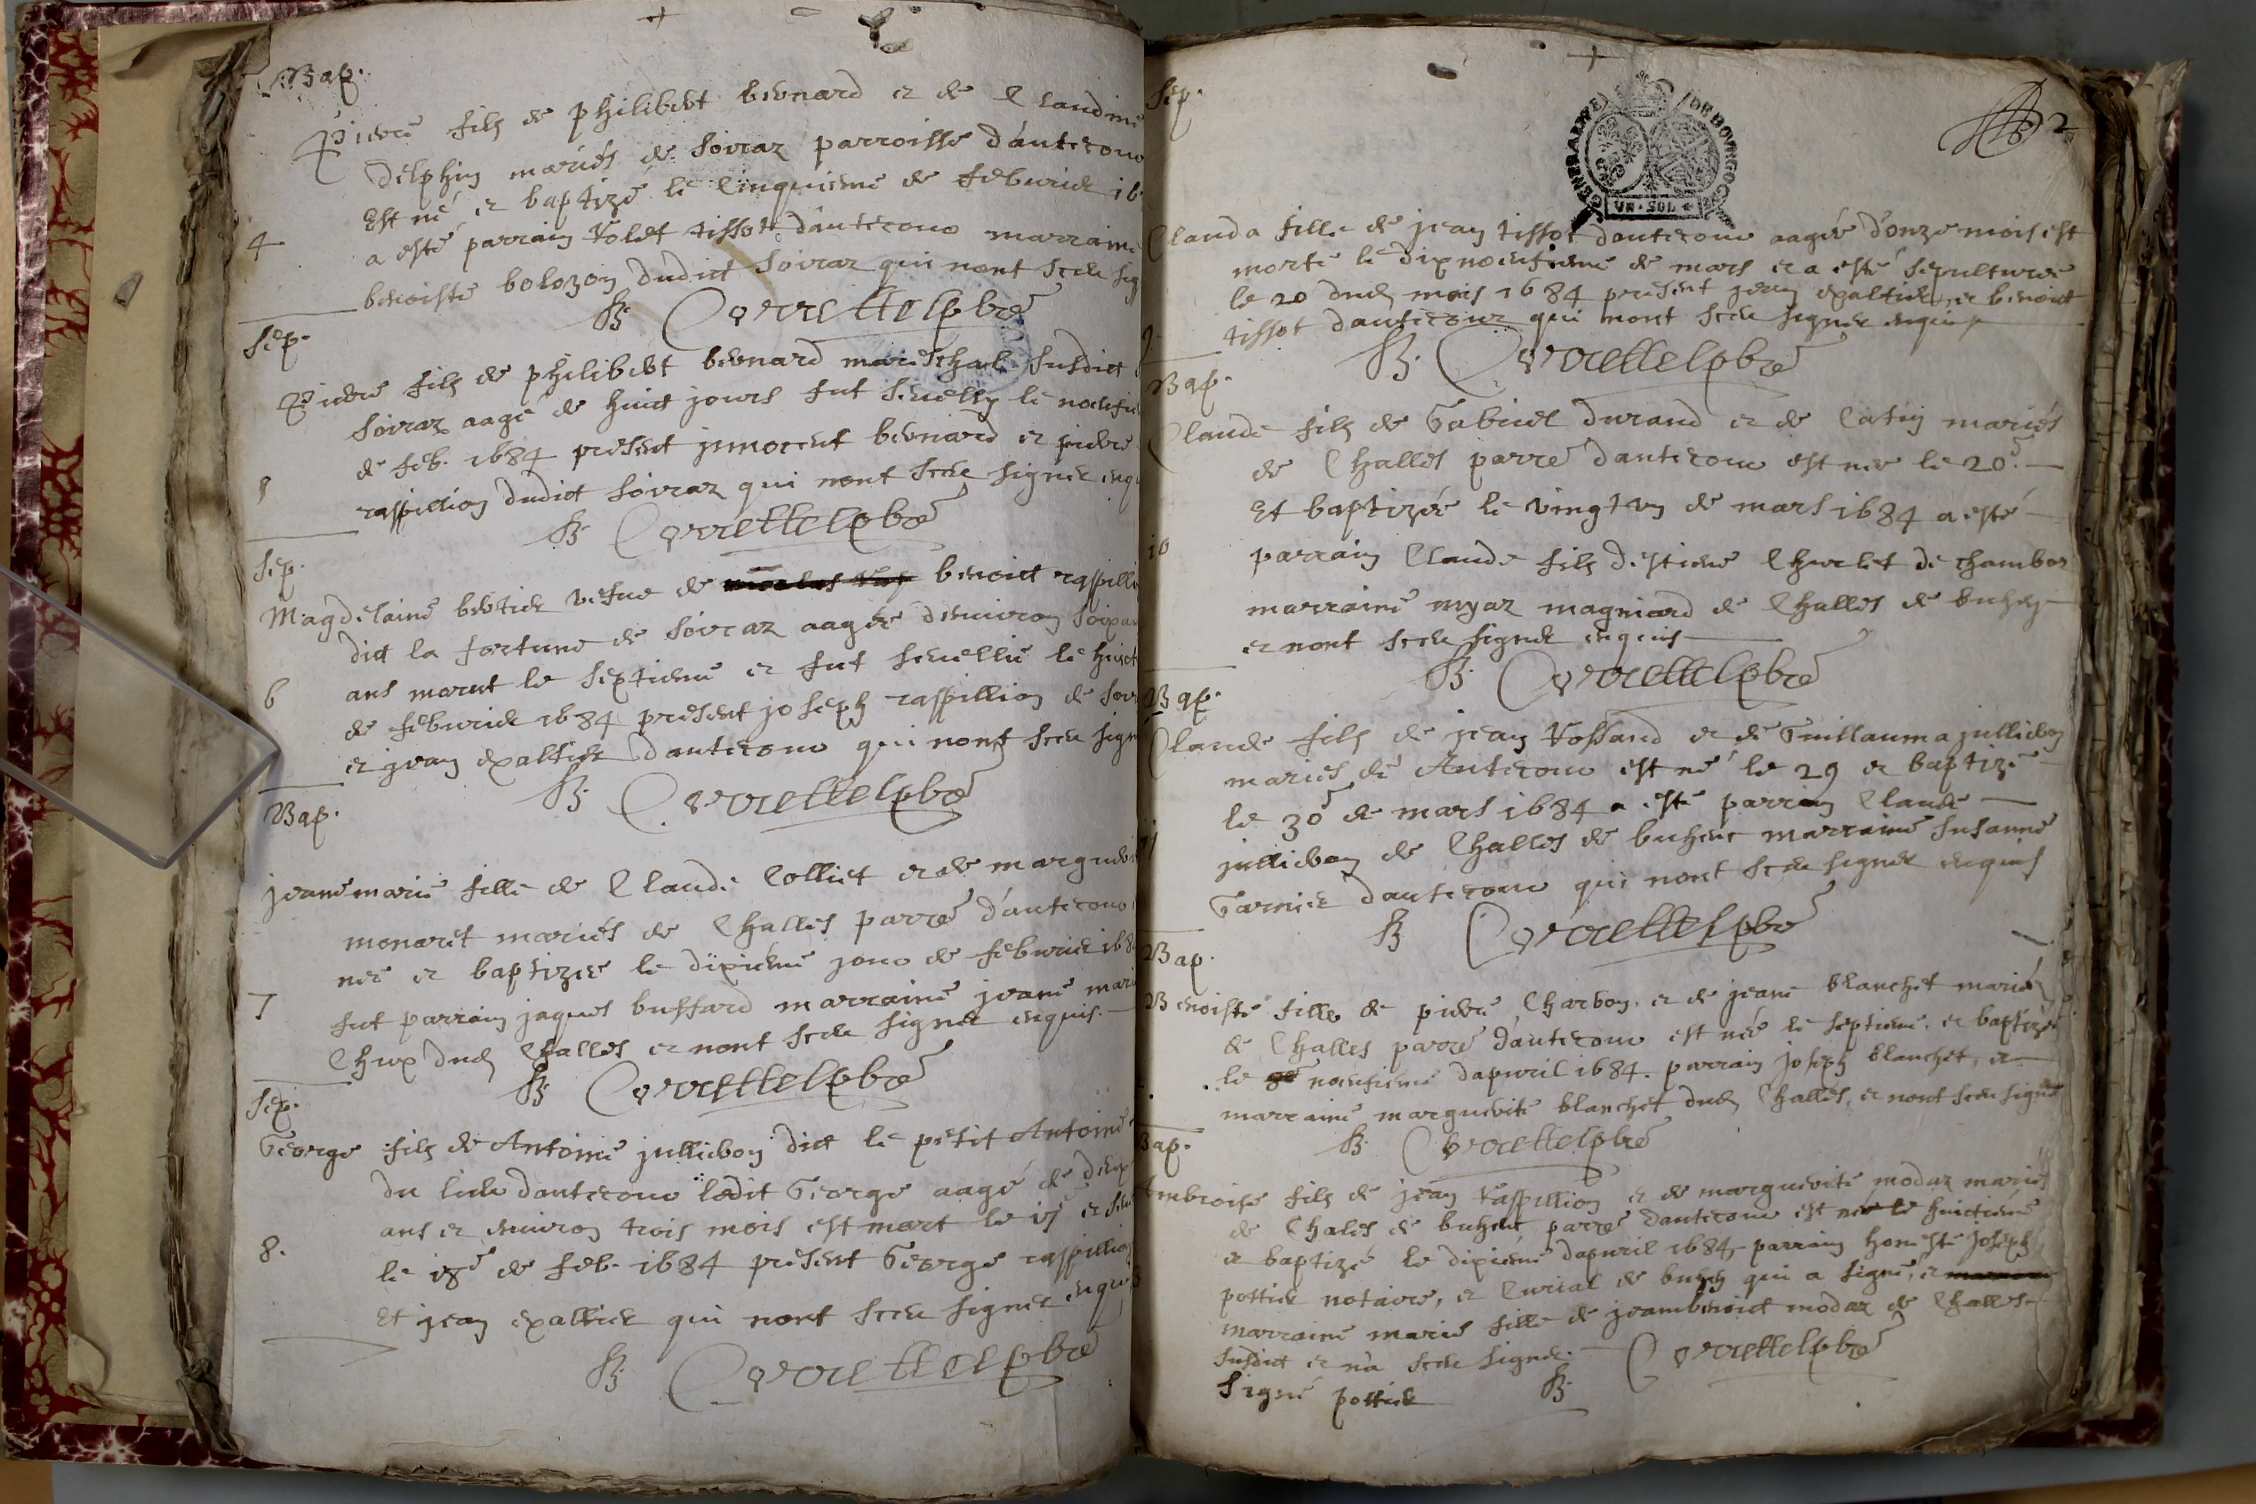 Bap.
Pierre filz de philibert bernard et de Claudine
delphin mariés de soiraz parroisse d'antecour
Est né et baptizé le Cinquieme de feburier 16
4
a esté parrain Rolet tissot d'antecour marraine
benoiste bolozon dudict soiraz qui nont sceu sig
B. Cornettel pbre
Sep.
Pierre filz de philibert bernard mareschal susdict
soiraz aagé de huict jours fut sevelly le noeufie
de feb. 1684 present jnnocent bernard et pierre
raspillion dudict soiraz qui nont sceu signer enqu
B. Cornettel pbre
Sep.
Magdelaine bertier vefue de benoict raspilli
dict la fortune de soiraz aagée d'enuiron soixan
6
ans morut le septieme et fut sevellie le huict
de feburier 1684 present joseph raspillion de soir
et jean exaltier d'antecour qui nont sceu sign
B. Cornettel pbre
Bap.
jeane marie fille de Claude Colliet et de marguer
monaret mariés de Challes parre d'antecour
née et baptizée le dixieme jour de feburier 168
7
fut parrain jaques bussard marraine jeane marie
Chux dud Challes et nont sceu signer enquis.
B. Cornettel pbre
Sep.
George filz de Antoine jullieron dict le petit Antoine
du lieu d'antecour ledit George aagé de deux
ans et enuiron trois mois est mort le 17 et seu
8.
le 18e de feb. 1684 present George raspillion
Et jean exaltier qui nont sceu signer enqu
B. Cornettel pbre
Sep.
GENERALITE DE BOURGOGNE
UN SOL
2
Clauda fille de jean tissot d'antecour aagée d'onze mois est
morte le dixnoeufieme de mars et a esté sepulturée
le 20 dud mois 1684 present jean exaltier, et benoict
tissot d'antecour qui nont sceu signer enquis
9
B. Cornettel pbre
Bap.
Claude filz de Gabriel durand et de Catin mariés
de Challes parre d'antecour est née le 20e
Et baptizée le vingt un de mars 1684 a esté
10
parrain Claude filz d'estiene Churlet de chambor
marraine myaz magniard de Challes de buhen
et nont sceu signer enquis
B. Cornettel pbre
Bap.
Claude filz de jean Rossand et de Guillauma jullieron
mariés de Antecour est né le 29 et baptizé
le 30e de mars 1684 a esté parrain Claude
jullieron de Challes de buhenc marraine susanne
Garnier d'antecour qui nont sceu signer enquis
B Cornettel pbre
Bap.
Benoiste fille de pierre Charbon. et de jeane blanchet mariés
de Challes parre d'antecour est née le septieme. et baptizée
le noeufieme d'apuril 1684. parrain joseph blanchet, et
marraine marguerite blanchet dud Challes, et nont sceu signe
B. Cornettel pbre
Bap.
Ambroise filz de jean Raspillion et de marguerite modaz mariés
de Chales de buhenc parre d'antecour est né le huictieme
et baptizé le dixieme d'apuril 1684 parrain honeste joseph
pottier notaire, et Curial de buhen qui a signé, et
marraine marie fille de jeambenoict modaz de Challes
susdict et n'a sceu signer.
Cornettel pbre
Signé pottier
B.